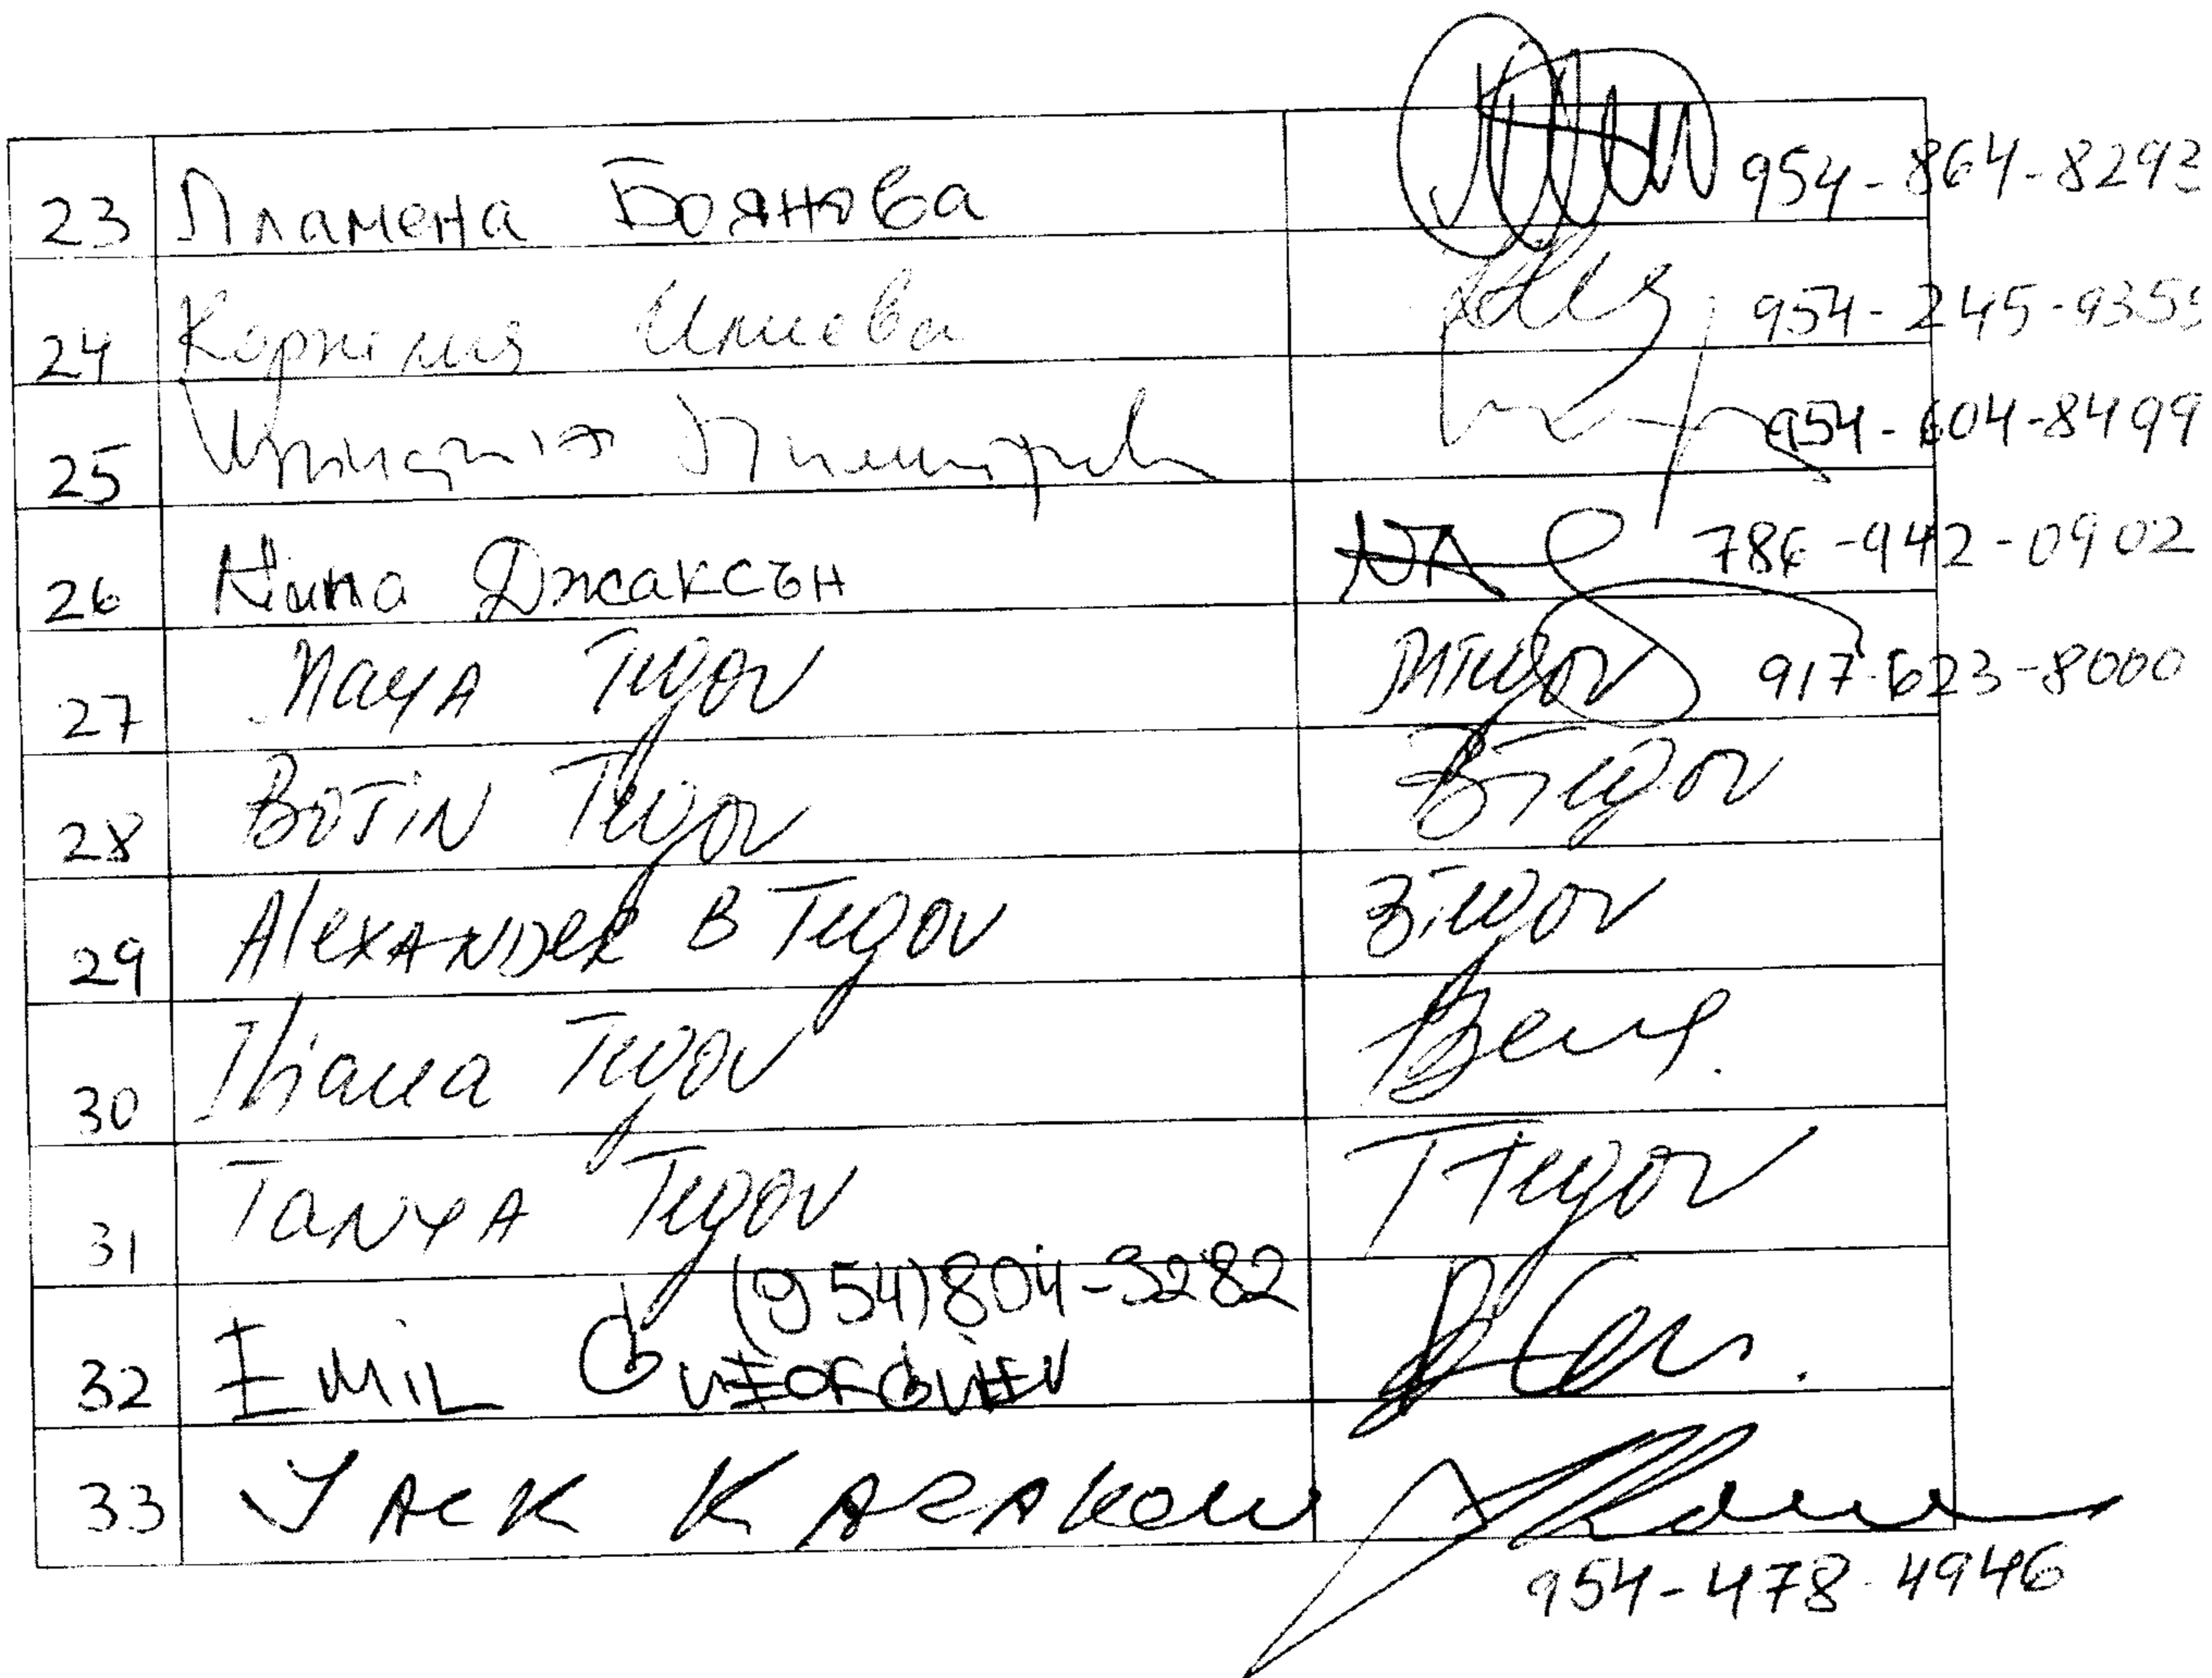 23 Пламена Боянова 954-864-8293
24 Корнелия Илиева 954-245-9355
25 954-604-8499
26 Нина Джаксън 786-942-0902
27 MAYA Tugov MTugov 917-623-8000
28 BOJIN Tugov BTugov
29 AlexANDeR B Tugov BTugov
30 Iliana Tugov
31 TANYA Tugov TTugov
(954)804-9282
32 EMIL GUEORGUIEV
33 JACK KAZAKOW
954-478-4946